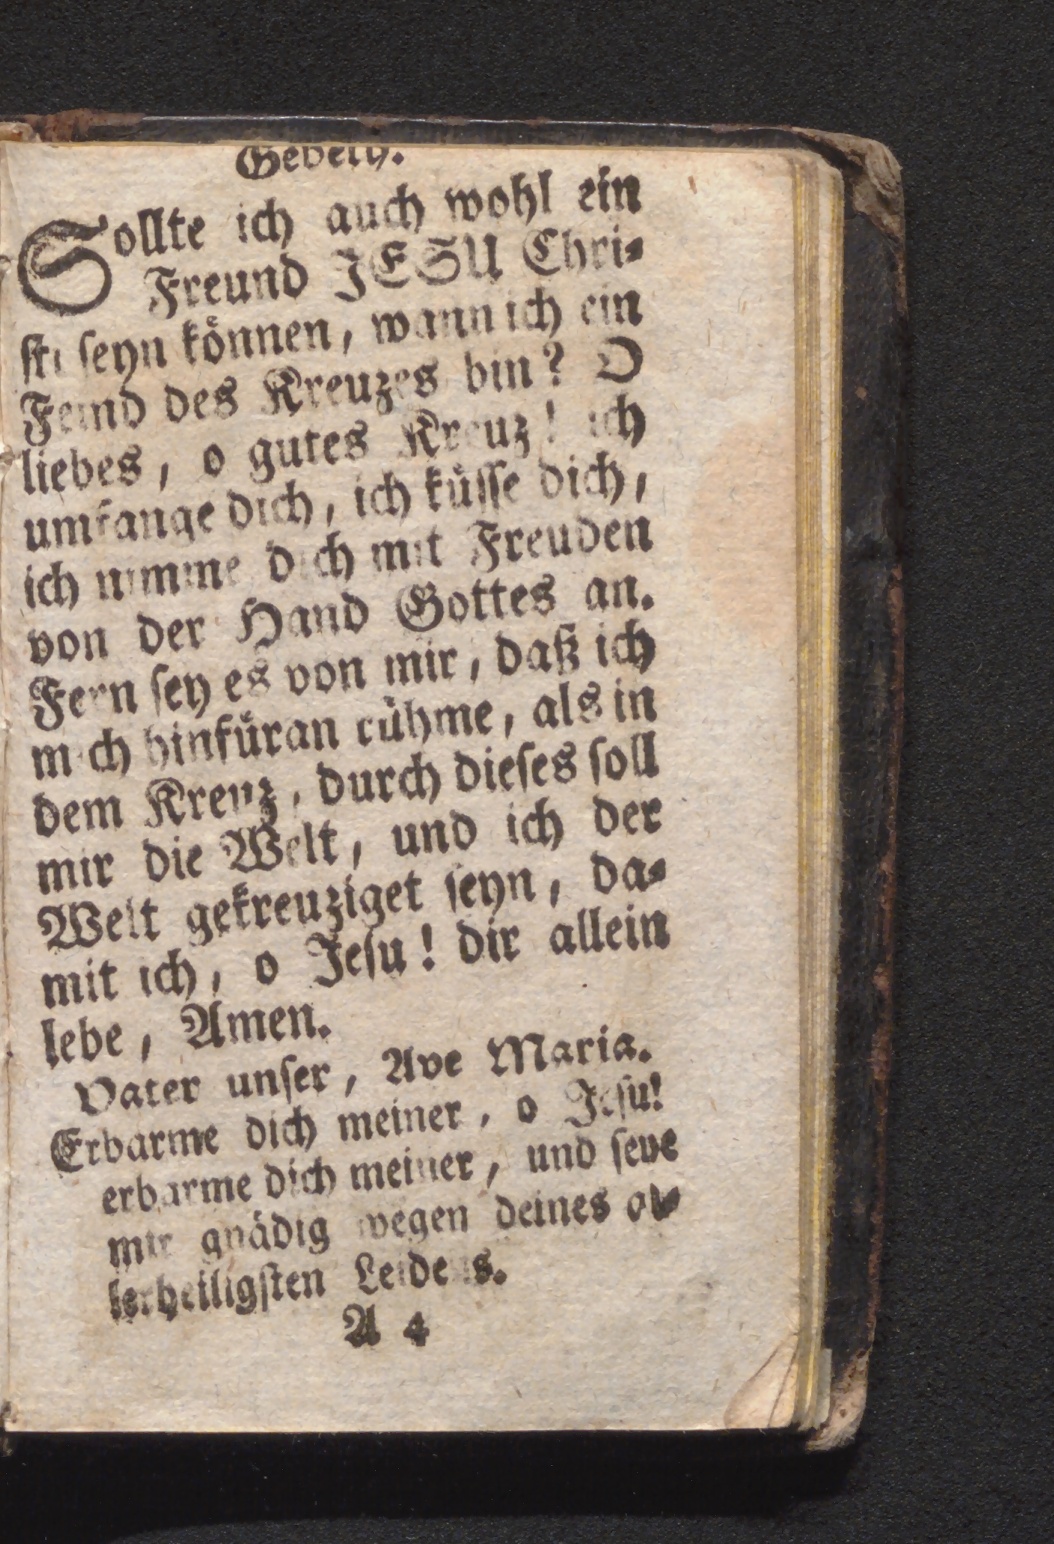 Gebeth.
Sollte ich auch wohl ein
Freund JESU Chri-
sti seyn können, wann ich ein
Feind des Kreuzes bin? O
liebes, o gutes Kreuz! ich
umfange dich, ich küsse dich,
ich nimme dich mit Freuden
von der Hand Gottes an.
Fern sey es von mir, daß ich
mich hinfüran rühme, als in
dem Kreuz, durch dieses soll
mir die Welt, und ich der
Welt gekreuziget seyn, da-
mit ich, o Jesu! dir allein
lebe, Amen.
Vater unser, Ave Maria.
Erbarme dich meiner, o Jesu!
erbarme dich meiner, und seye
mir gnädig wegen deines al-
lerheiligsten Leidens.
A 4